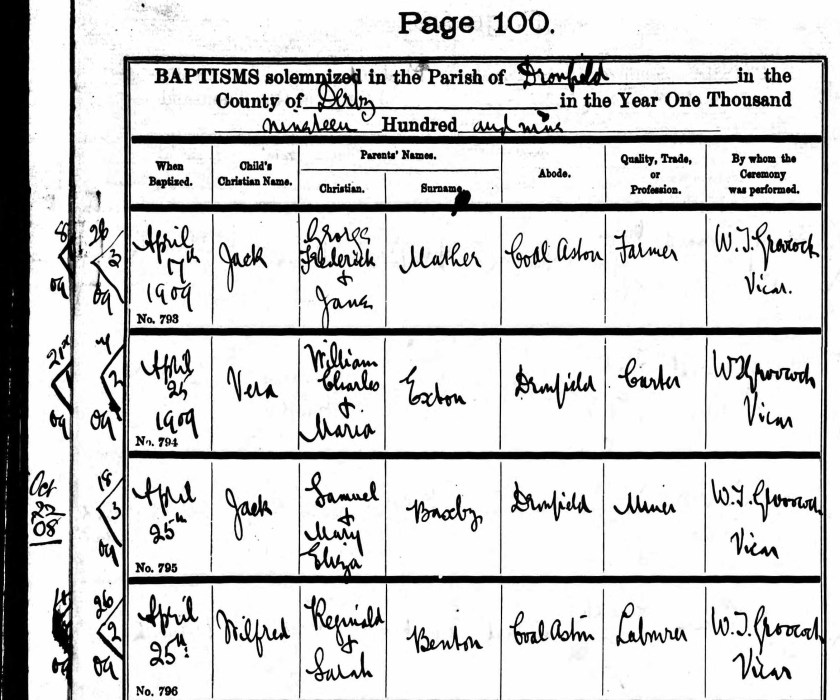 Page 100.
BAPTISMS solemnized in the Parish of Dronfield in the
County of Derby in the Year One Thousand
nineteen Hundred and nine
When Baptized.
Child's Christian Name.
Parents' Names.
Christian.
Surname.
Abode.
Quality, Trade, or Profession.
By whom the Ceremony was performed.
26
3
09
April 17th 1909
No. 793
Jack
George Frederick & Jane
Mather
Coal Aston
Farmer
W.T. Groocock Vicar.
2
09
April 25 1909
No. 794
Vera
William Charles & Maria
Exton
Dronfield
Carter
W T Groocock Vicar
Oct 22 08
18
3
09
April 25th
No. 795
Jack
Samuel & Mary Eliza
Baxby
Dronfield
Miner
W.T. Groocock Vicar
26
2
09
April 25th
No. 796
Wilfred
Reginald & Sarah
Benton
Coal Aston
Labourer
W.T. Groocock Vicar